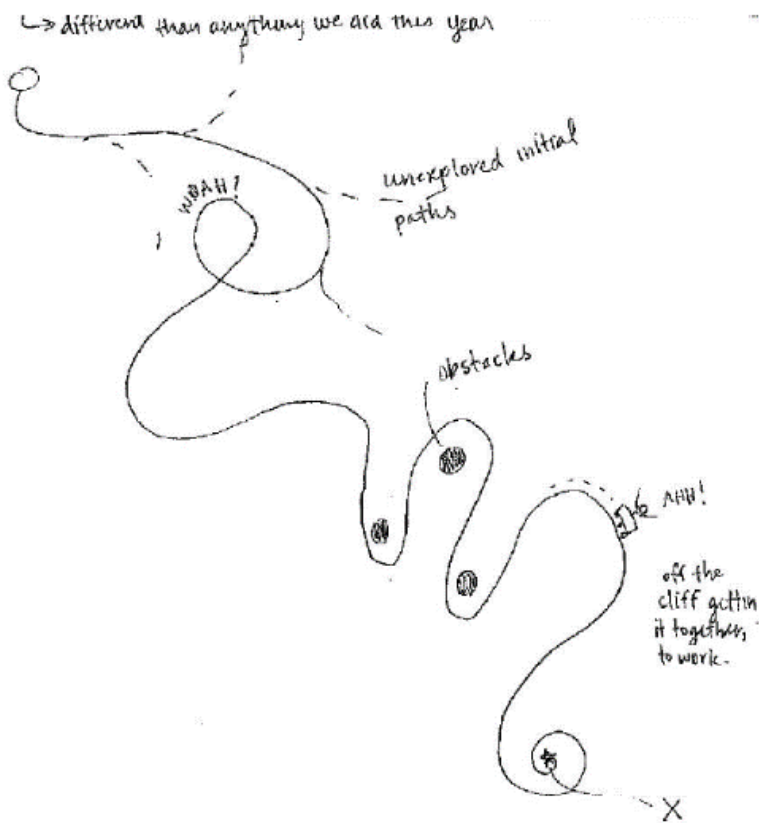 ↳ different than anything we did this year
WOAH!
unexplored initial
paths
obstacles
AHH!
off the
cliff gettin
it together,
to work.
X